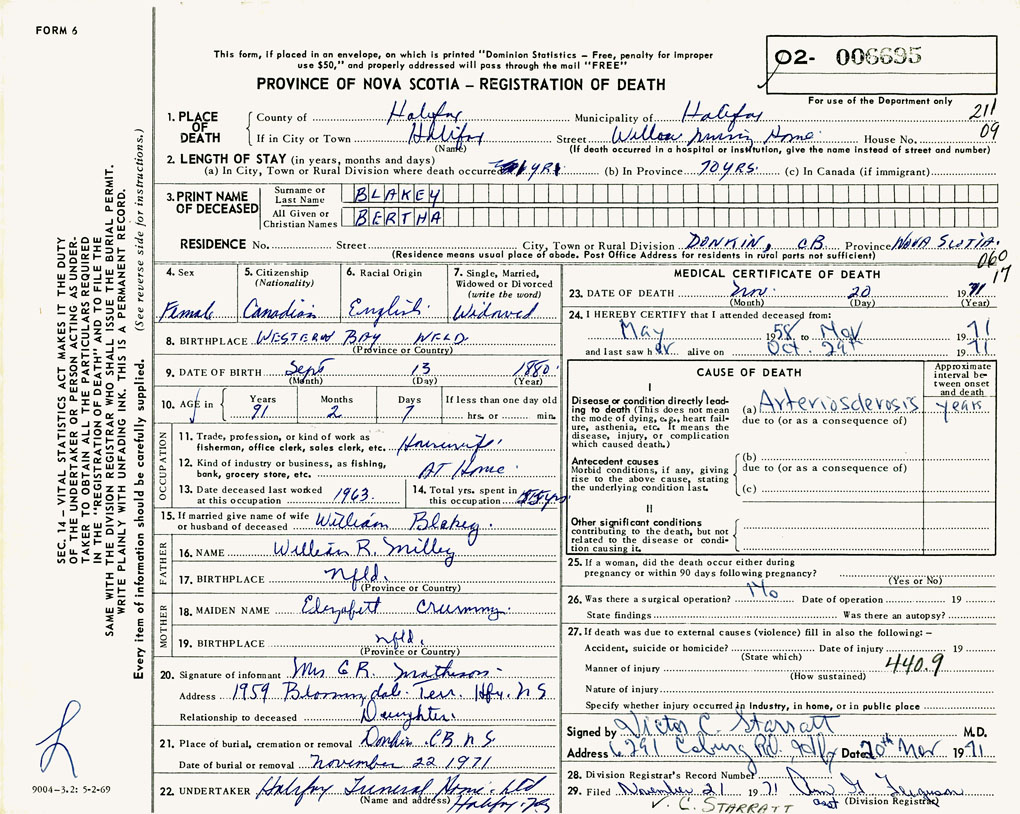 FORM 6
This form, if placed in an envelope, on which is printed "Dominion Statistics – Free, penalty for improper
use $50," and properly addressed will pass through the mail "FREE"
PROVINCE OF NOVA SCOTIA – REGISTRATION OF DEATH
02- 006695
For use of the Department only
211
09
1. PLACE OF DEATH County of Halifax Municipality of Halifax
If in City or Town Halifax Street Willow Nursing Home House No.
(Name) (If death occurred in a hospital or institution, give the name instead of street and number)
2. LENGTH OF STAY (in years, months and days)
(a) In City, Town or Rural Division where death occurred yrs. (b) In Province 70 YRS. (c) In Canada (if immigrant)
3. PRINT NAME OF DECEASED
Surname or Last Name BLAKEY
All Given or Christian Names BERTHA
RESIDENCE No. Street City, Town or Rural Division DONKIN, CB. Province NOVA SCOTIA.
(Residence means usual place of abode. Post Office Address for residents in rural parts not sufficient)
060
17
4. Sex Female
5. Citizenship (Nationality) Canadian
6. Racial Origin English
7. Single, Married, Widowed or Divorced (write the word) Widowed
8. BIRTHPLACE WESTERN BAY NFLD
(Province or Country)
9. DATE OF BIRTH Sept 13 1880
(Month) (Day) (Year)
10. AGE in Years 91 Months 2 Days 7 If less than one day old hrs. or min.
OCCUPATION
11. Trade, profession, or kind of work as
fisherman, office clerk, sales clerk, etc. Housewife
12. Kind of industry or business, as fishing,
bank, grocery store, etc. AT Home
13. Date deceased last worked
at this occupation 1963
14. Total yrs. spent in
this occupation yrs
15. If married give name of wife
or husband of deceased William Blakey.
FATHER
16. NAME William R. Milley
17. BIRTHPLACE nfld.
(Province or Country)
MOTHER
18. MAIDEN NAME Elizabeth Crummy.
19. BIRTHPLACE nfld.
(Province or Country)
20. Signature of informant Mrs G R. Matheson
Address 1959 Bloomingdale Terr. Hfx. N S
Relationship to deceased Daughter.
21. Place of burial, cremation or removal Donkin CB N S
Date of burial or removal November 22 1971
22. UNDERTAKER Halifax Funeral Home Ltd
(Name and address) Halifax NS
MEDICAL CERTIFICATE OF DEATH
23. DATE OF DEATH Nov. 20 1971
(Month) (Day) (Year)
24. I HEREBY CERTIFY that I attended deceased from:
May 1958 to Nov 1971
and last saw her alive on Oct. 29th 1971
CAUSE OF DEATH
Approximate interval between onset and death
I
Disease or condition directly leading to death (This does not mean the mode of dying, e.g., heart failure, asthenia, etc. It means the disease, injury, or complication which caused death.)
(a) Arteriosclerosis years
due to (or as a consequence of)
Antecedent causes
Morbid conditions, if any, giving rise to the above cause, stating the underlying condition last.
(b)
due to (or as a consequence of)
(c)
II
Other significant conditions
contributing to the death, but not related to the disease or condition causing it.
25. If a woman, did the death occur either during
pregnancy or within 90 days following pregnancy?
(Yes or No)
26. Was there a surgical operation? No Date of operation 19
State findings Was there an autopsy?
27. If death was due to external causes (violence) fill in also the following: –
Accident, suicide or homicide? Date of injury 19
(State which)
Manner of injury 440.9
(How sustained)
Nature of injury
Specify whether injury occurred in industry, in home, or in public place
Signed by Victor C. Starratt M.D.
Address 6291 Coburg Rd. Hfx Date 20th Nov 1971
28. Division Registrar's Record Number
29. Filed November 21 1971 Ferguson
asst (Division Registrar)
V. C. STARRATT
SEC. 14 – VITAL STATISTICS ACT MAKES IT THE DUTY
OF THE UNDERTAKER OR PERSON ACTING AS UNDER-
TAKER TO OBTAIN ALL THE PARTICULARS REQUIRED
IN THE "REGISTRATION OF DEATH" AND TO FILE THE
SAME WITH THE DIVISION REGISTRAR WHO SHALL ISSUE THE BURIAL PERMIT.
WRITE PLAINLY WITH UNFADING INK. THIS IS A PERMANENT RECORD.
Every item of information should be carefully supplied. (See reverse side for instructions.)
9004–3.2: 5-2-69